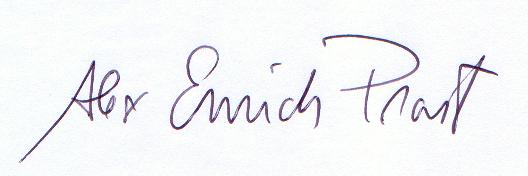 Alex Emrich Prast